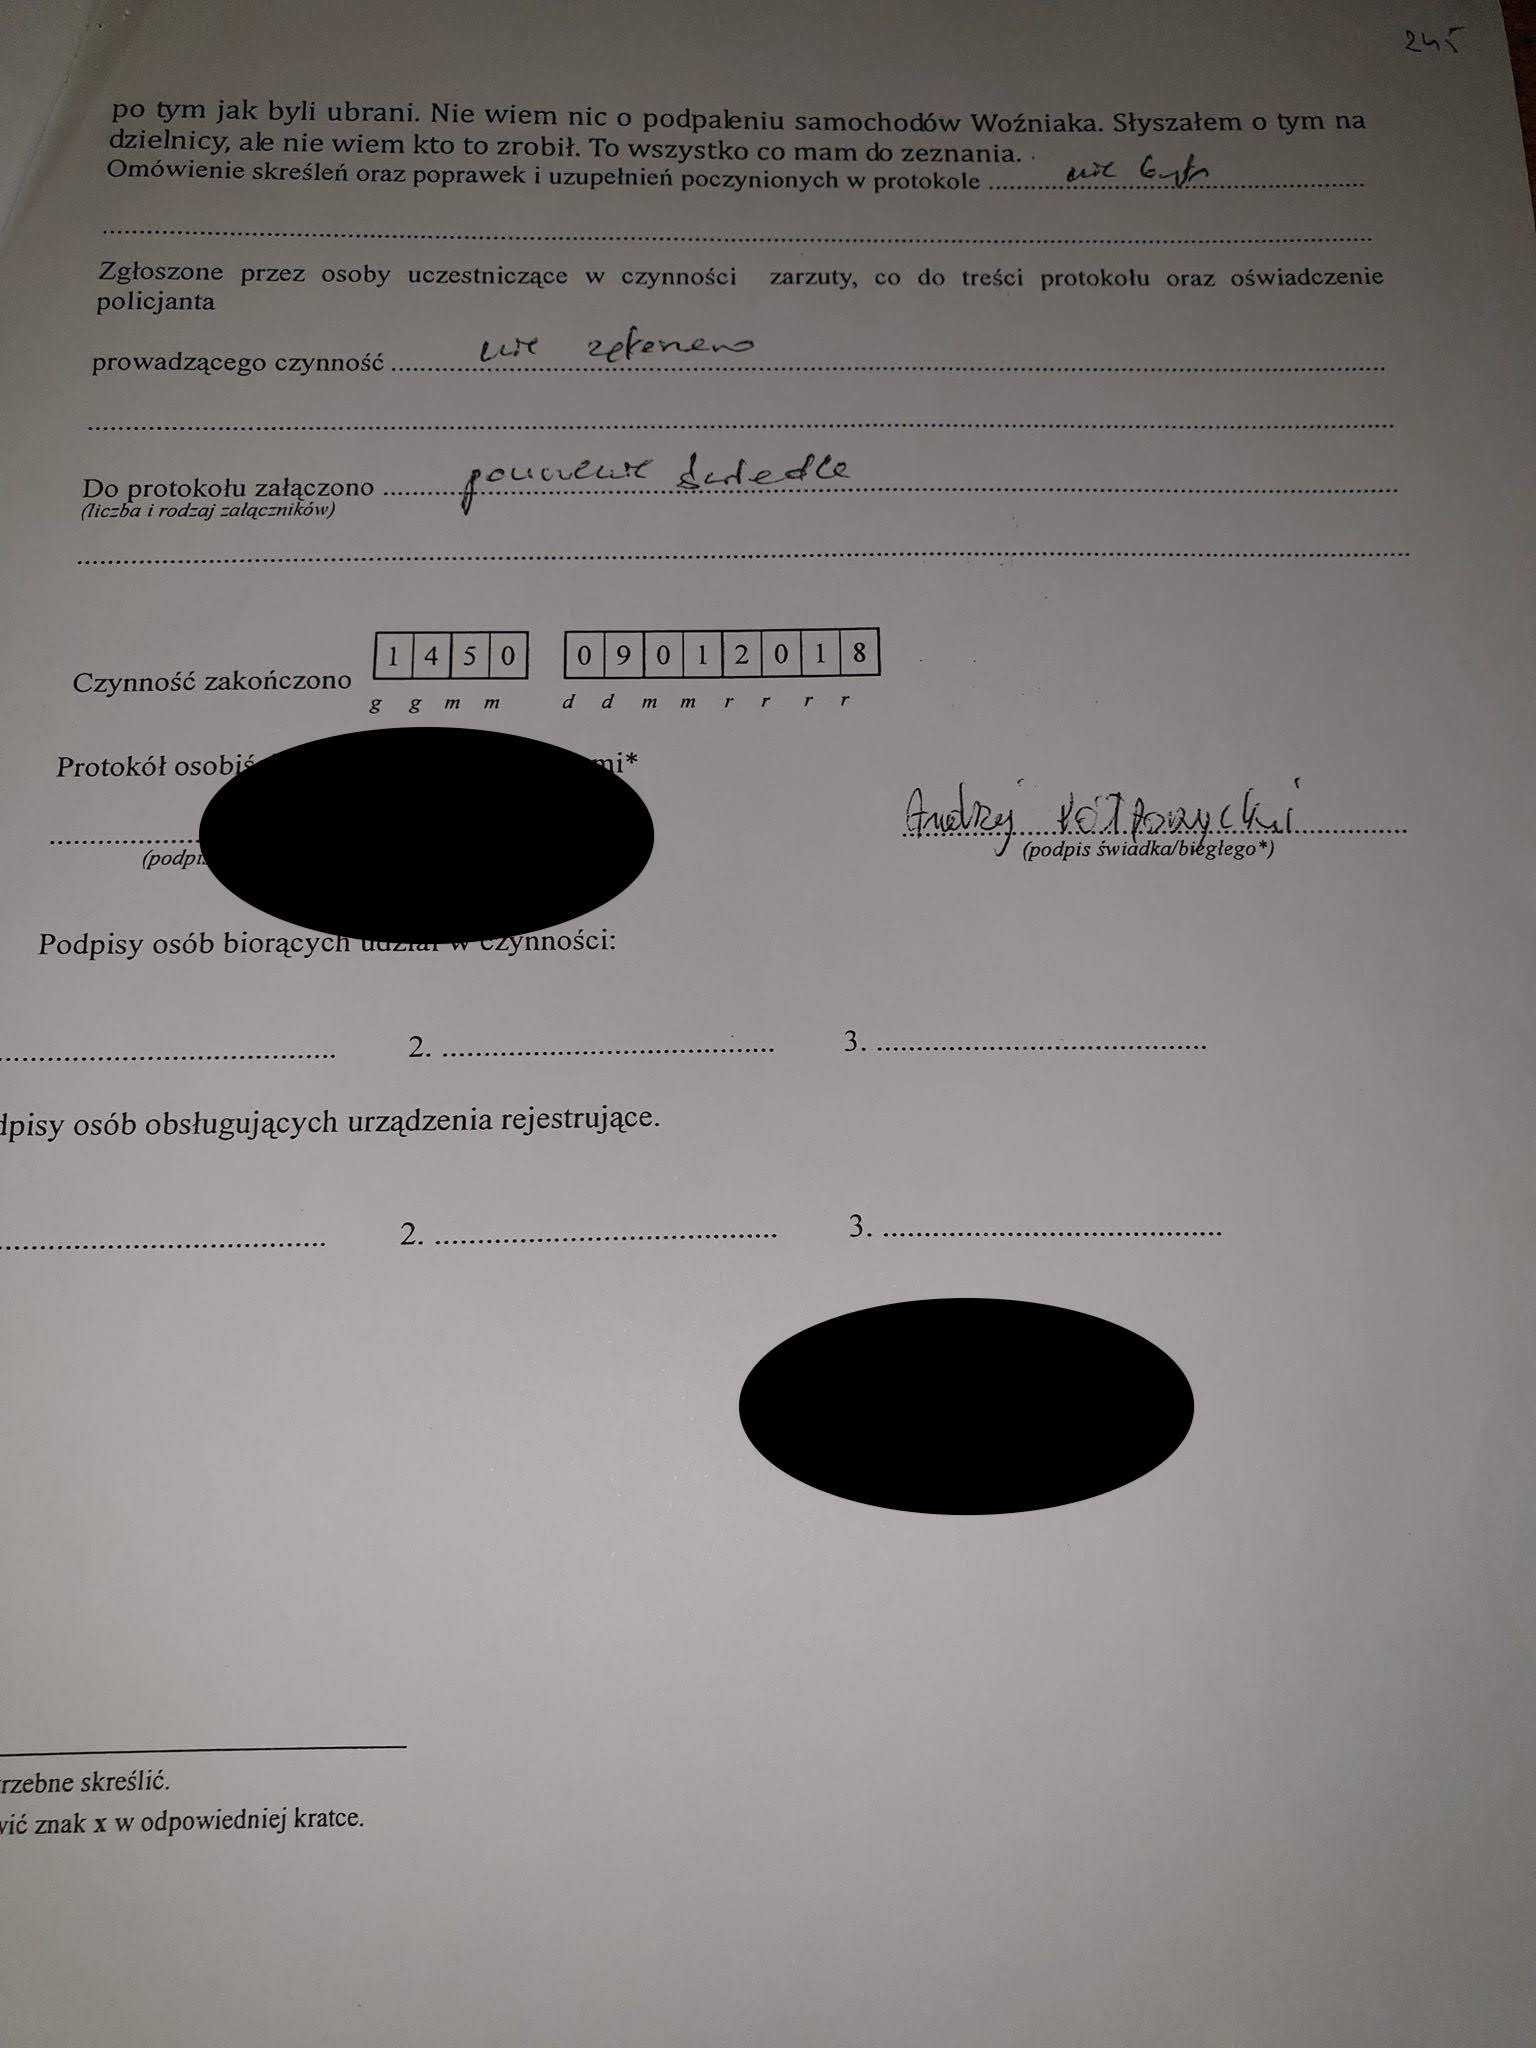 245
po tym jak byli ubrani. Nie wiem nic o podpaleniu samochodów Woźniaka. Słyszałem o tym na
dzielnicy, ale nie wiem kto to zrobił. To wszystko co mam do zeznania.
Omówienie skreśleń oraz poprawek i uzupełnień poczynionych w protokole nie
Zgłoszone przez osoby uczestniczące w czynności zarzuty, co do treści protokołu oraz oświadczenie
policjanta
prowadzącego czynność nie
Do protokołu załączono pouczenie świadka
(liczba i rodzaj załączników)
Czynność zakończono 1450 09012018
g g m m d d m m r r r r
Protokół osobiś mi*
Andrzej Półtorzycki
(podpis świadka/biegłego*)
(podpis
Podpisy osób biorących udział w czynności:
2. 3.
dpisy osób obsługujących urządzenia rejestrujące.
2. 3.
rzebne skreślić.
vić znak x w odpowiedniej kratce.